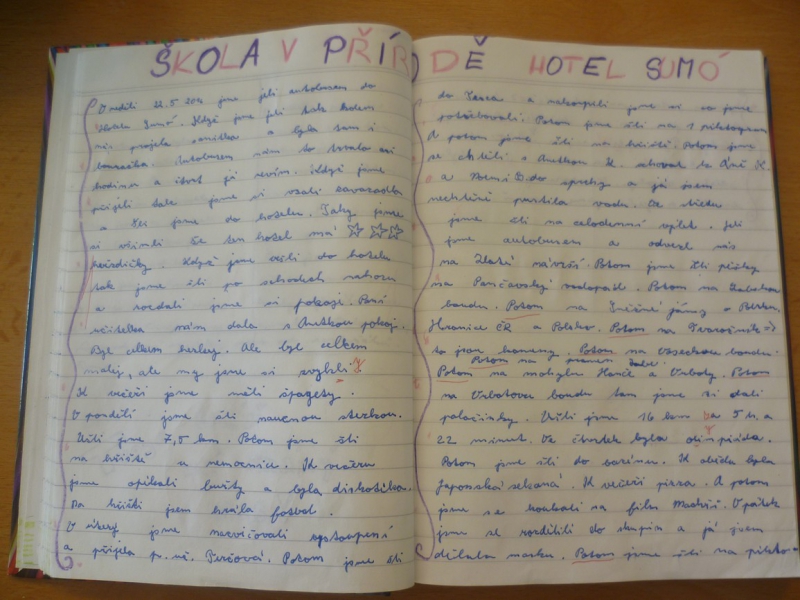 ŠKOLA V PŘÍRODĚ HOTEL SUMÓ
V neděli 22.5 jsme jeli autobusem do
Hotelu Sumó. Když jsme jeli tak kolem
nás projela sanitka a byla tam i
bouračka. Autobusem nám to trvalo asi
hodinu a čtvrt já nevím. Když jsme
přijeli tak jsme si vzali zavazadla
a šli jsme do hotelu. Taky jsme
si všimli že ten hotel má ☆ ☆☆
hvězdičky. Když jsme vešli do hotelu
tak jsme šli po schodech nahoru
a rozdali jsme si pokoje. Paní
učitelka nám dala s Anetkou pokoj.
Byl celkem hezkej. Ale byl celkem
malej, ale my jsme si zvykli.
K večeři jsme měli špagety.
V pondělí jsme šli naučnou stezkou.
Ušli jsme 7,5 km. Potom jsme šli
na hřiště u nemocnice. K večeru
jsme opékali buřty a byla diskotéka.
Na hřišti jsem hrála fotbal.
V úterý jsme nacvičovali vystoupení
a přijela p. uč. Potom jsme šli
do a nakoupili jsme si co jsme
potřebovali. Potom jsme šli na 1 piktogram
A potom jsme šli na hřiště. Potom jsme
se chtěli s Anetkou K. schovat té Áně K.
a Noemi D. do sprchy a já jsem
nechtěně pustila vodu. Ve středu
jsme šli na celodenní výlet. Jeli
jsme autobusem a odvezl nás
na Zlaté návrší. Potom jsme šli pěšky
na Pančavský vodopád. Potom na Labskou
boudu. Potom na Sněžné jámy a Polsko.
Hranice ČR a Polskou. Potom na Tvarožník =>
to jsou kameny. Potom na Voseckou boudu.
Potom na pramen Labe.
Potom na mohylu Hanče a Vrbaty. Potom
na Vrbatovu boudu tam jsme si dali
palačinky. Ušli jsme 16 km za 5 h. a
22 minut. Ve čtvrtek byla olimpiáda.
Potom jsme šli do bazénu. K obědu byla
sekaná. K večeři pizza. A potom
jsme se koukali na film. V pátek
jsme se rozdělili do skupin a já jsem
dělala masku. Potom jsme šli na pikto-